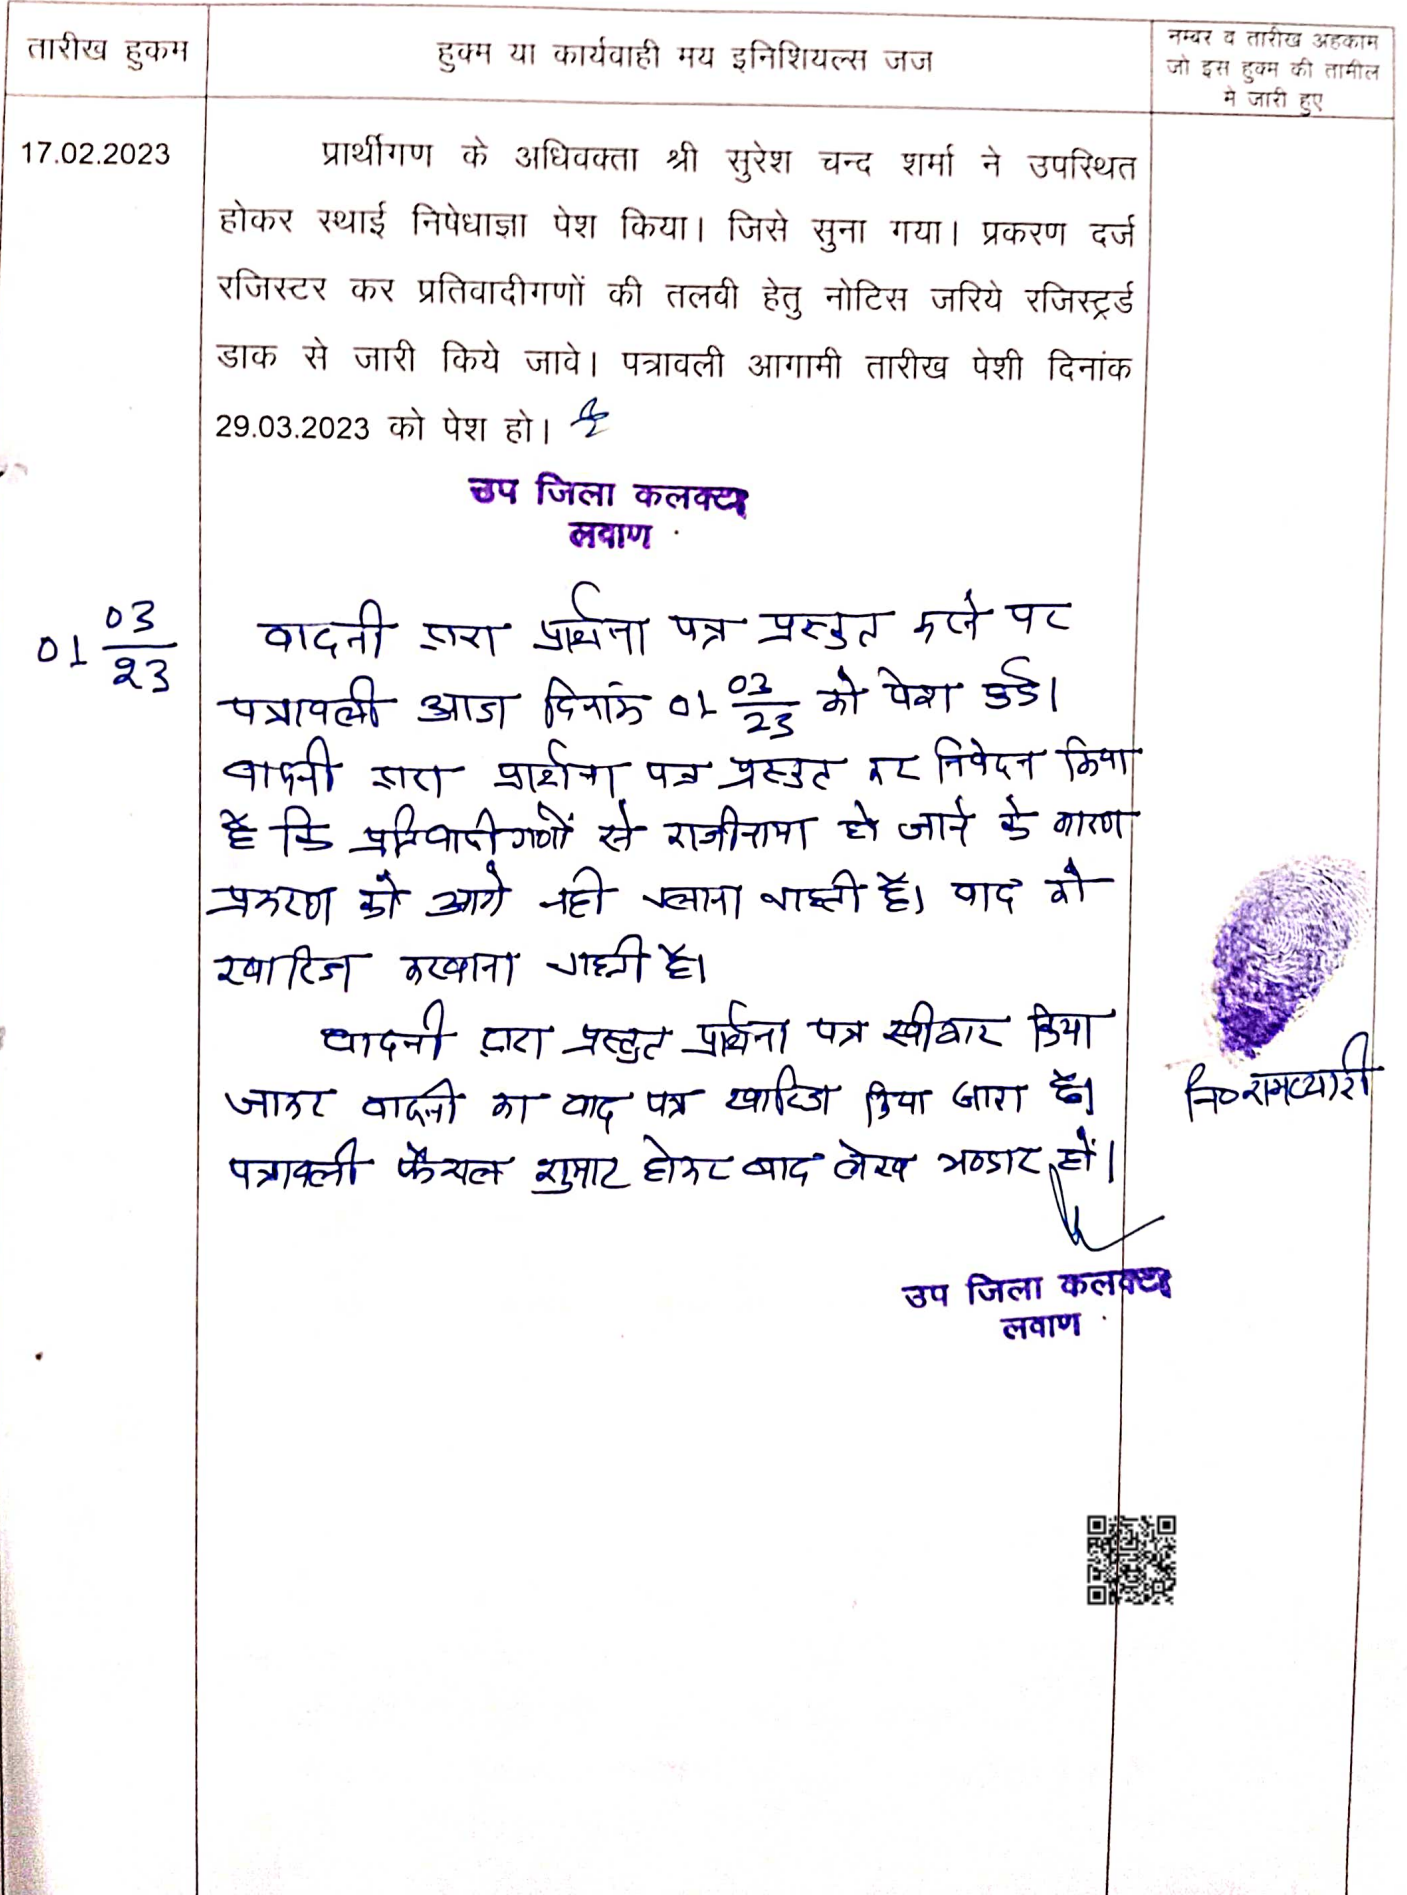 तारीख हुकम
हुक्म या कार्यवाही मय इनिशियल्स जज
नम्बर व तारीख अहकाम
जो इस हुक्म की तामील
मे जारी हुए
17.02.2023
प्रार्थीगण के अधिवक्ता श्री सुरेश चन्द शर्मा ने उपस्थित
होकर स्थाई निषेधाज्ञा पेश किया। जिसे सुना गया। प्रकरण दर्ज
रजिस्टर कर प्रतिवादीगणों की तलवी हेतु नोटिस जरिये रजिस्ट्रर्ड
डाक से जारी किये जावे। पत्रावली आगामी तारीख पेशी दिनांक
29.03.2023 को पेश हो।
उप जिला कलक्टर
लवाण
01 03/23
वादनी द्वारा प्रार्थना पत्र प्रस्तुत करने पर
पत्रावली आज दिनांक 01 03/23 को पेश हुई।
वादनी द्वारा प्रार्थना पत्र प्रस्तुत कर निवेदन किया
है कि प्रतिवादीगणों से राजीनामा हो जाने के कारण
प्रकरण को आगे नही चलाना चाहती है। वाद को
खारिज करवाना चाहती है।
वादनी द्वारा प्रस्तुत प्रार्थना पत्र स्वीकार किया
जाकर वादनी का वाद पत्र खारिज किया जाता है।
पत्रावली फैसल शुमार होकर बाद लेख भण्डार हो।
नि० रामप्यारी
उप जिला कलक्टर
लवाण